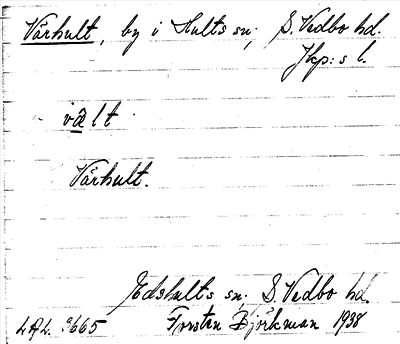 Vårhult, by i Hults sn; S. Vedbo hd.
Jkp:s l.
vålt
Vårhult.
Edshults sn; S. Vedbo hd.
LAL. 3665 Torsten Björkman 1938